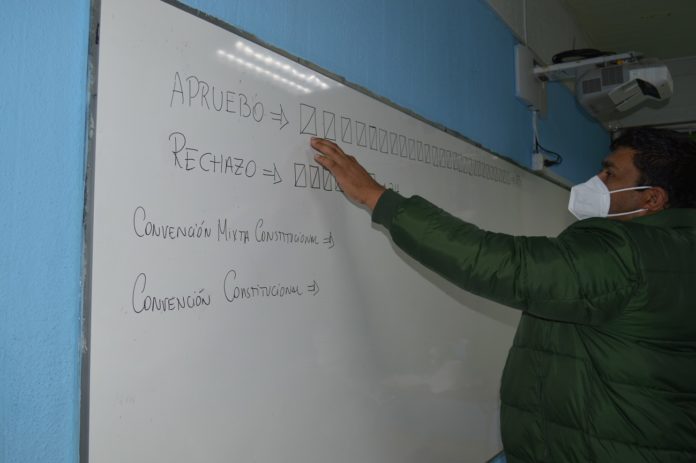 APRUEBO ⇒
RECHAZO ⇒
CONVENCIÓN MIXTA CONSTITUCIONAL ⇒
CONVENCIÓN CONSTITUCIONAL ⇒